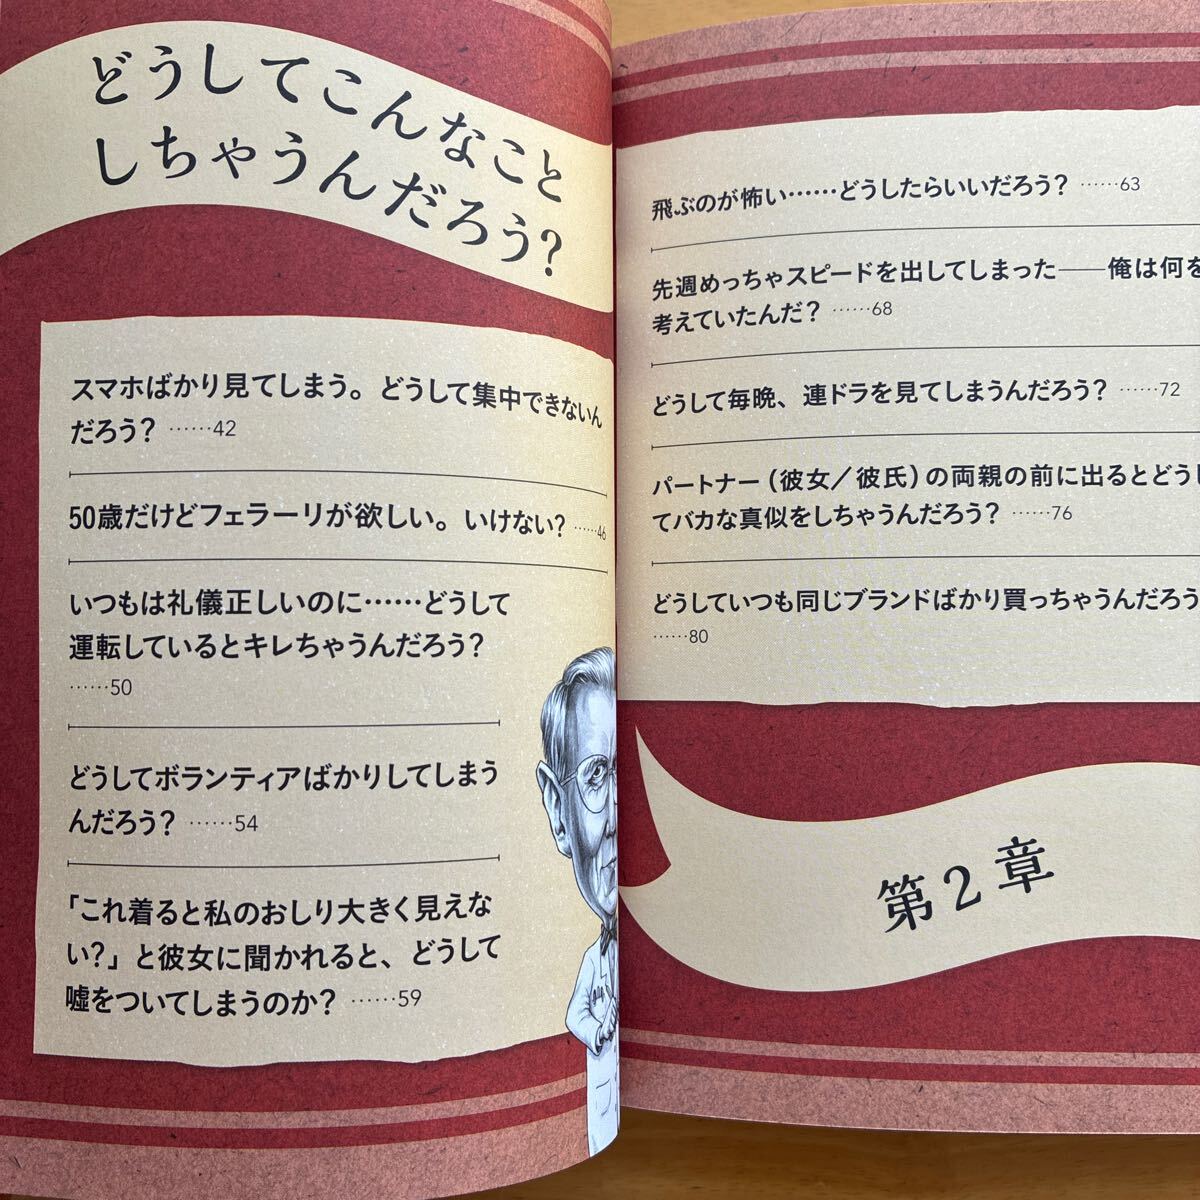 どうしてこんなこと
しちゃうんだろう?
スマホばかり見てしまう。どうして集中できないん
だろう? ……42
50歳だけどフェラーリが欲しい。いけない? ……46
いつもは礼儀正しいのに……どうして
運転しているとキレちゃうんだろう?
……50
どうしてボランティアばかりしてしまう
んだろう? ……54
「これ着ると私のおしり大きく見えな
い?」と彼女に聞かれると、どうして
嘘をついてしまうのか? ……59
飛ぶのが怖い……どうしたらいいだろう? ……63
先週めっちゃスピードを出してしまった——俺は何を
考えていたんだ? ……68
どうして毎晩、連ドラを見てしまうんだろう? ……72
パートナー(彼女/彼氏)の両親の前に出るとどうし
てバカな真似をしちゃうんだろう? ……76
どうしていつも同じブランドばかり買っちゃうんだろう
……80
第2章